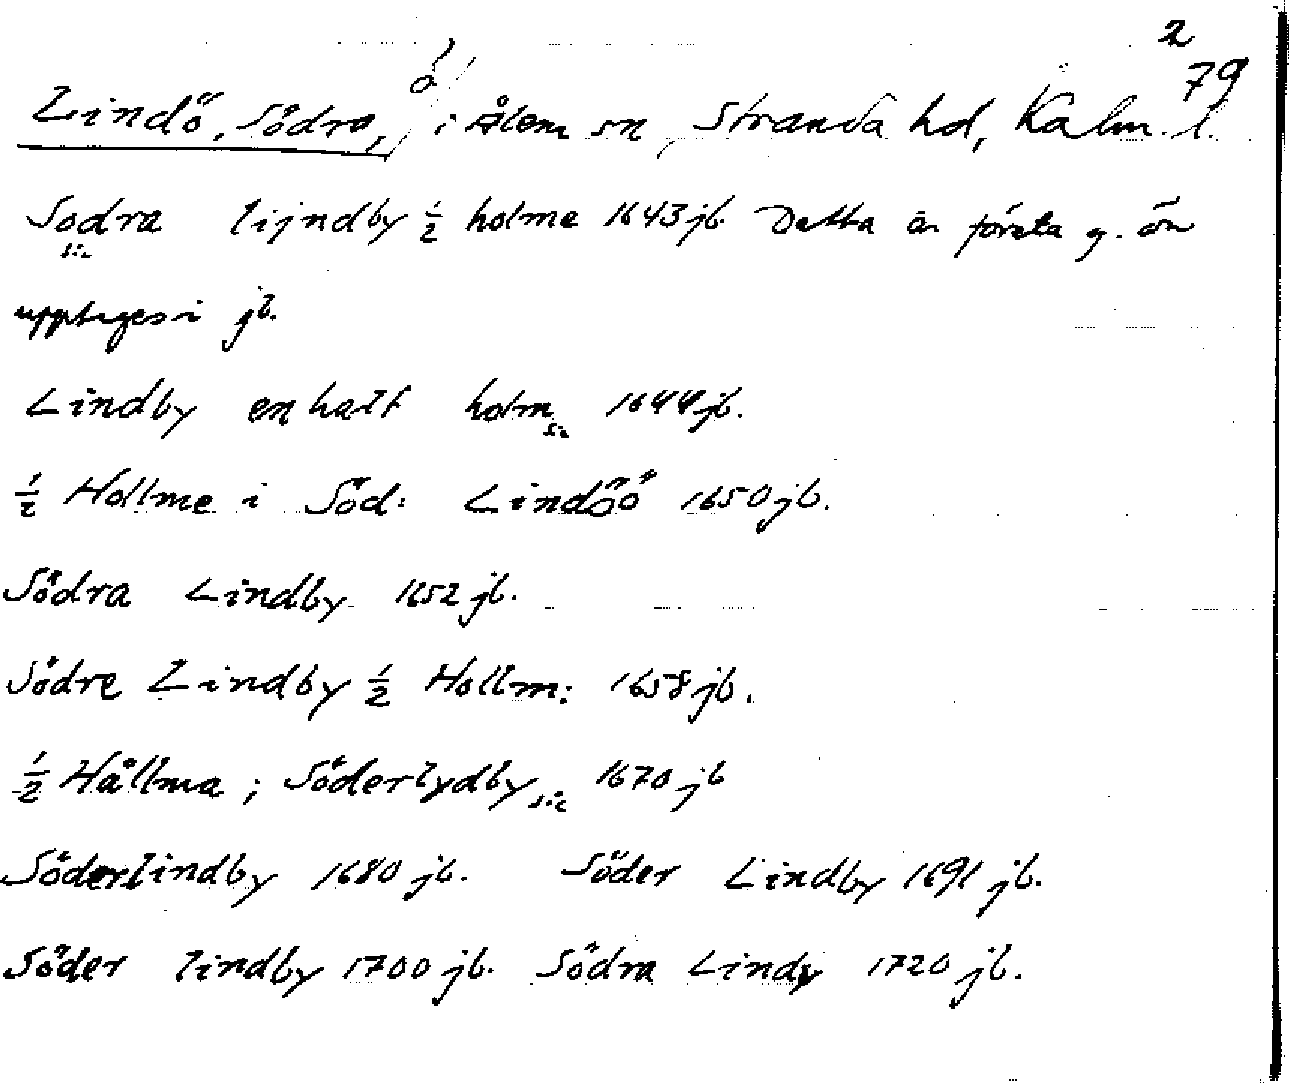 2
79
Lindö, Södra, ö i Ålem sn, Stranda hd, Kalm. l.
Sodra lijndby ½ holme 1643 jb. Detta är första g. ön
sic
upptages i jb.
Lindby en half holm 1644 jb.
sic
½ Hollme i Söd: Lindöö 1650 jb.
Södra Lindby 1652 jb.
Södre Lindby ½ Hollm: 1658 jb.
½ Hållma ; Söderlydby sic 1670 jb
Söderlindby 1680 jb. Söder Lindby 1691 jb.
Söder lindby 1700 jb. Södra Lindy 1720 jb.